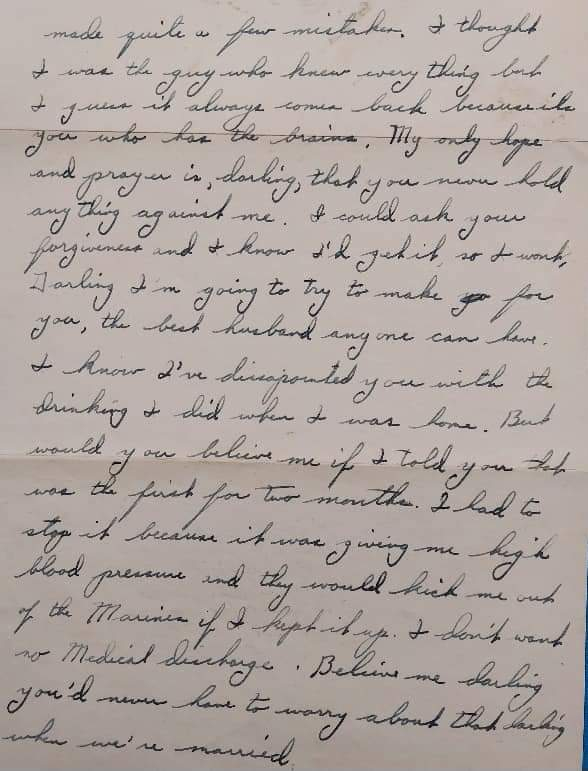 made quite a few mistakes. I thought
I was the guy who knew every thing but
I guess it always comes back because its
you who has the brains. My only hope
and prayer is, darling, that you never hold
any thing against me. I could ask your
forgiveness and I know I'd get it, so I wont,
Darling I'm going to try to make for
you, the best husband any one can have.
I know I've dissapointed you with the
drinking I did when I was home. But
would you believe me if I told you that
was the first for two months. I had to
stop it because it was giving me high
blood pressure and they would kick me out
of the Marines if I kept it up. I don't want
no Medical discharge. Believe me darling
you'd never have to worry about that darling
when we're married